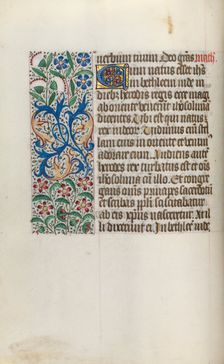 verbum tuum. Deo gr̄as math
Cum natus esset ihs
in bethleem iude in
dieb; herodis regis ecce magi
ab oriente venerunt iherosolimā
dicentes Ubi est qui natus
rex iudeor̄ Vidimus enī stel
lam eius in oriente et venimus
adorare eum Audiens aute
herodes rex turbatus est et ois
iherosolima cū illo Et congre
gans om̄s principes sacerdotū
et scribas ppl̄i sciscitabatur
ab eis xp̄us nasceretur At il
li dixerunt ei In bethlee iude